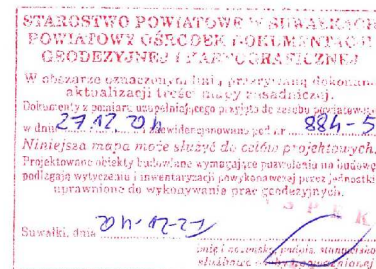 STAROSTWO POWIATOWE W SUWAŁKACH
POWIATOWY OŚRODEK DOKUMENTACJI
GEODEZYJNEJ I KARTOGRAFICZNEJ
W obszarze oznaczonym linią przerywaną dokonano
aktualizacji treści mapy zasadniczej.
Dokumenty z pomiaru uzupełniającego przyjęto do zasobu powiatowego
w dniu 27.12.04 i zaewidencjonowano pod nr 884-5
Niniejsza mapa może służyć do celów projektowych.
Projektowane obiekty budowlane wymagające pozwolenia na budowę
podlegają wytyczeniu i inwentaryzacji powykonawczej przez jednostki
uprawnione do wykonywania prac geodezyjnych.
Suwałki, dnia
imię i nazwisko, podpis, stanowisko
służbowe